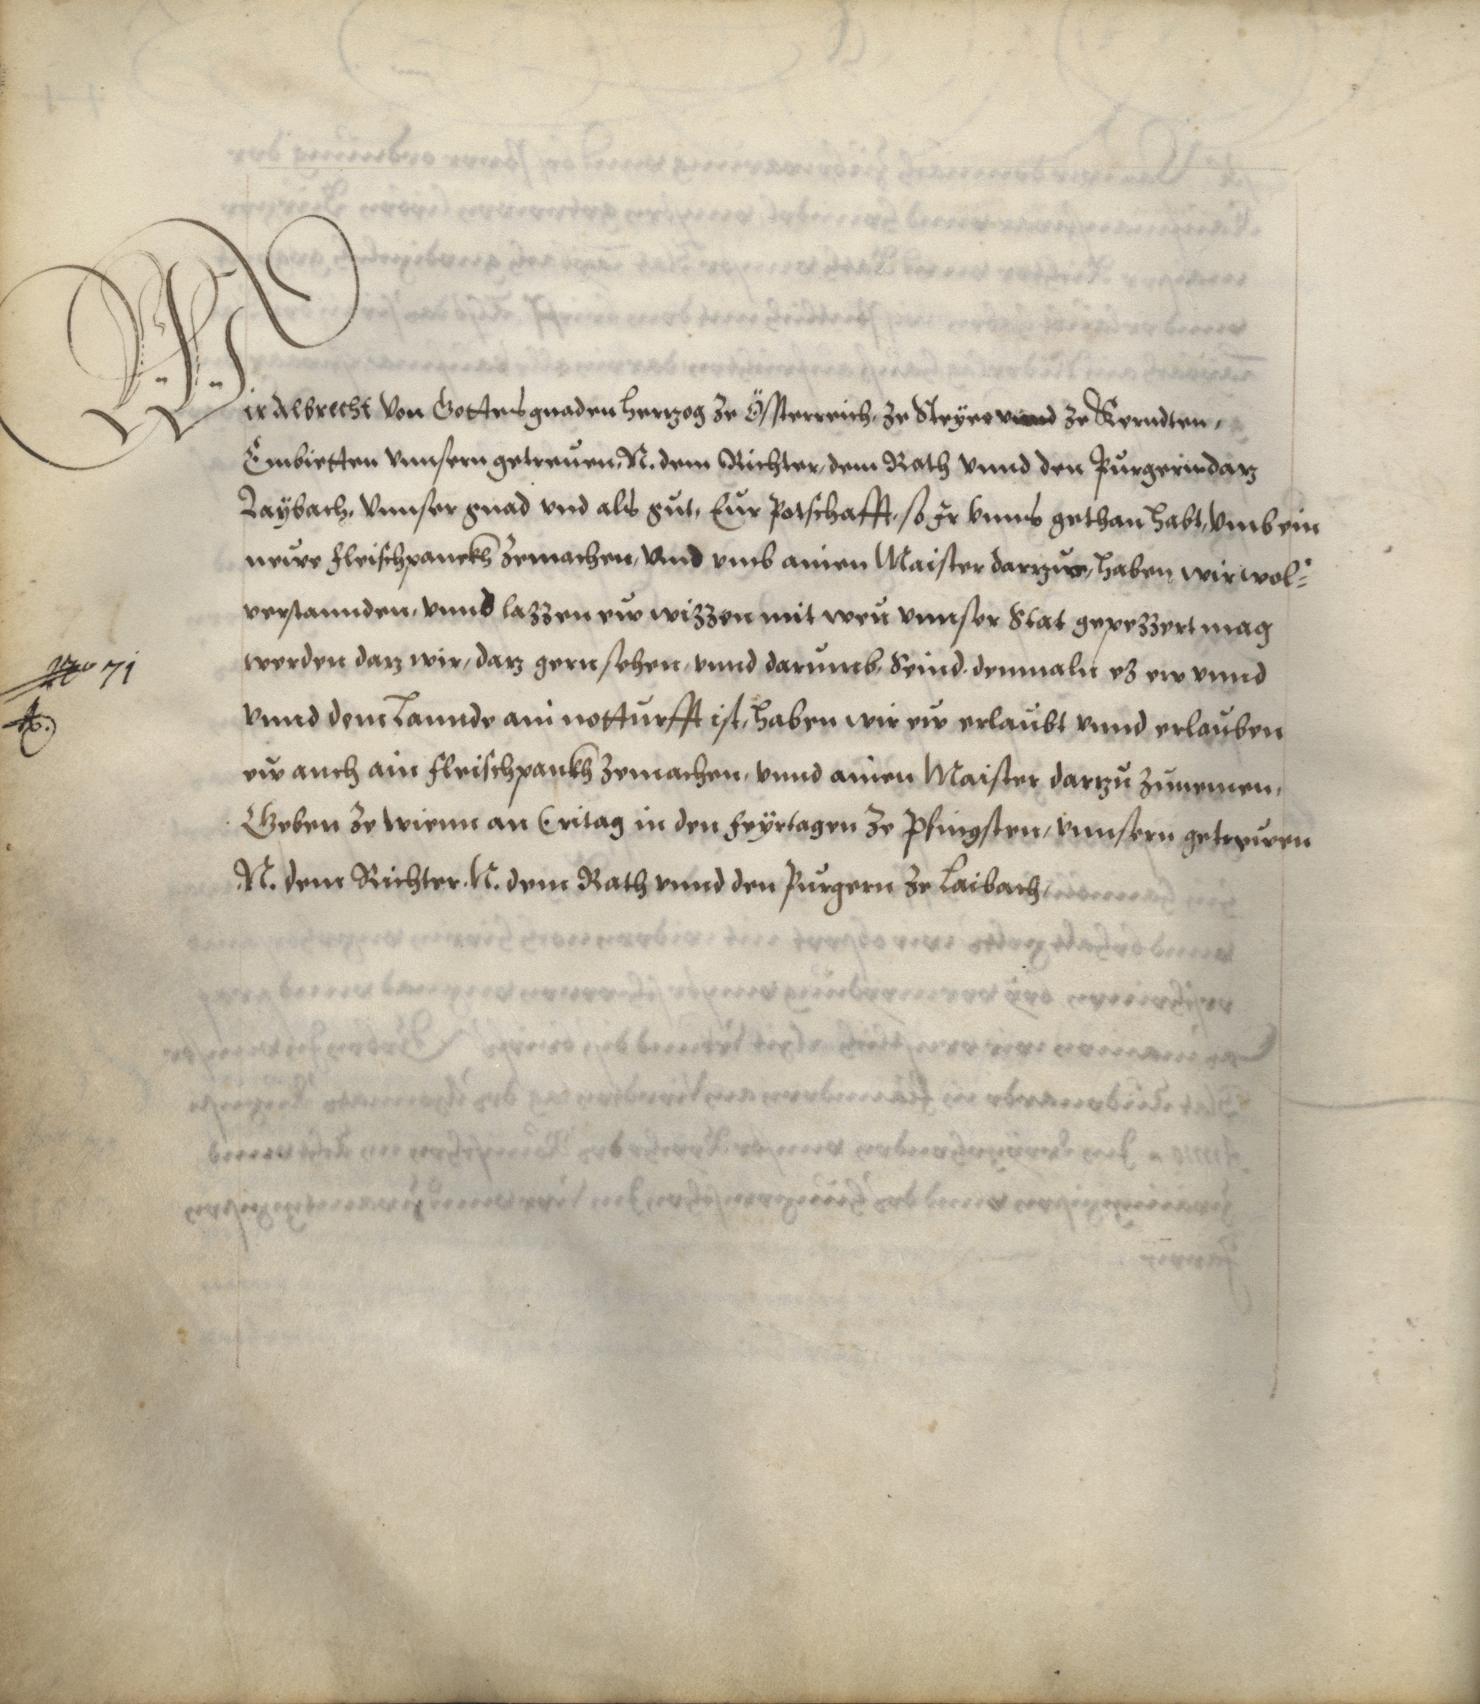 Wir Albrecht Von Gottes gnaden Hertzog ze Össterreich, ze Steyer vnnd ze Kerndten,
Embietten Vnnsern getreuen, N. dem Richter, dem Rath Vnnd den Purgerin datz
Laybach, Vnnser gnad vnd als gut, Eur Potschafft, so Ir Vnns gethan habt, Vmb ein
newe fleischpanckh zemachen, Vnd vmb ainen Maister darzue, haben wir wol
verstannden, vnnd lazzen ew wizzen mit weu vnnser Stat gepezzert mag
werden daz wir, daz gern sehen, vnnd darumb, Seind, denmaln ez ew vnnd
Vnnd dem Lannde ain notturfft ist, haben wir ew erlaubt vnnd erlauben
ew auch ain fleischpankh zemachen, vnnd ainen Maister dartzu zunemen,
Geben ze Wienn an Eritag in den feyrtagen ze Pfingsten, Vnnsern getreuen
N. dem Richter. N. dem Rath vnnd den Purgern ze Laibach,
No 71